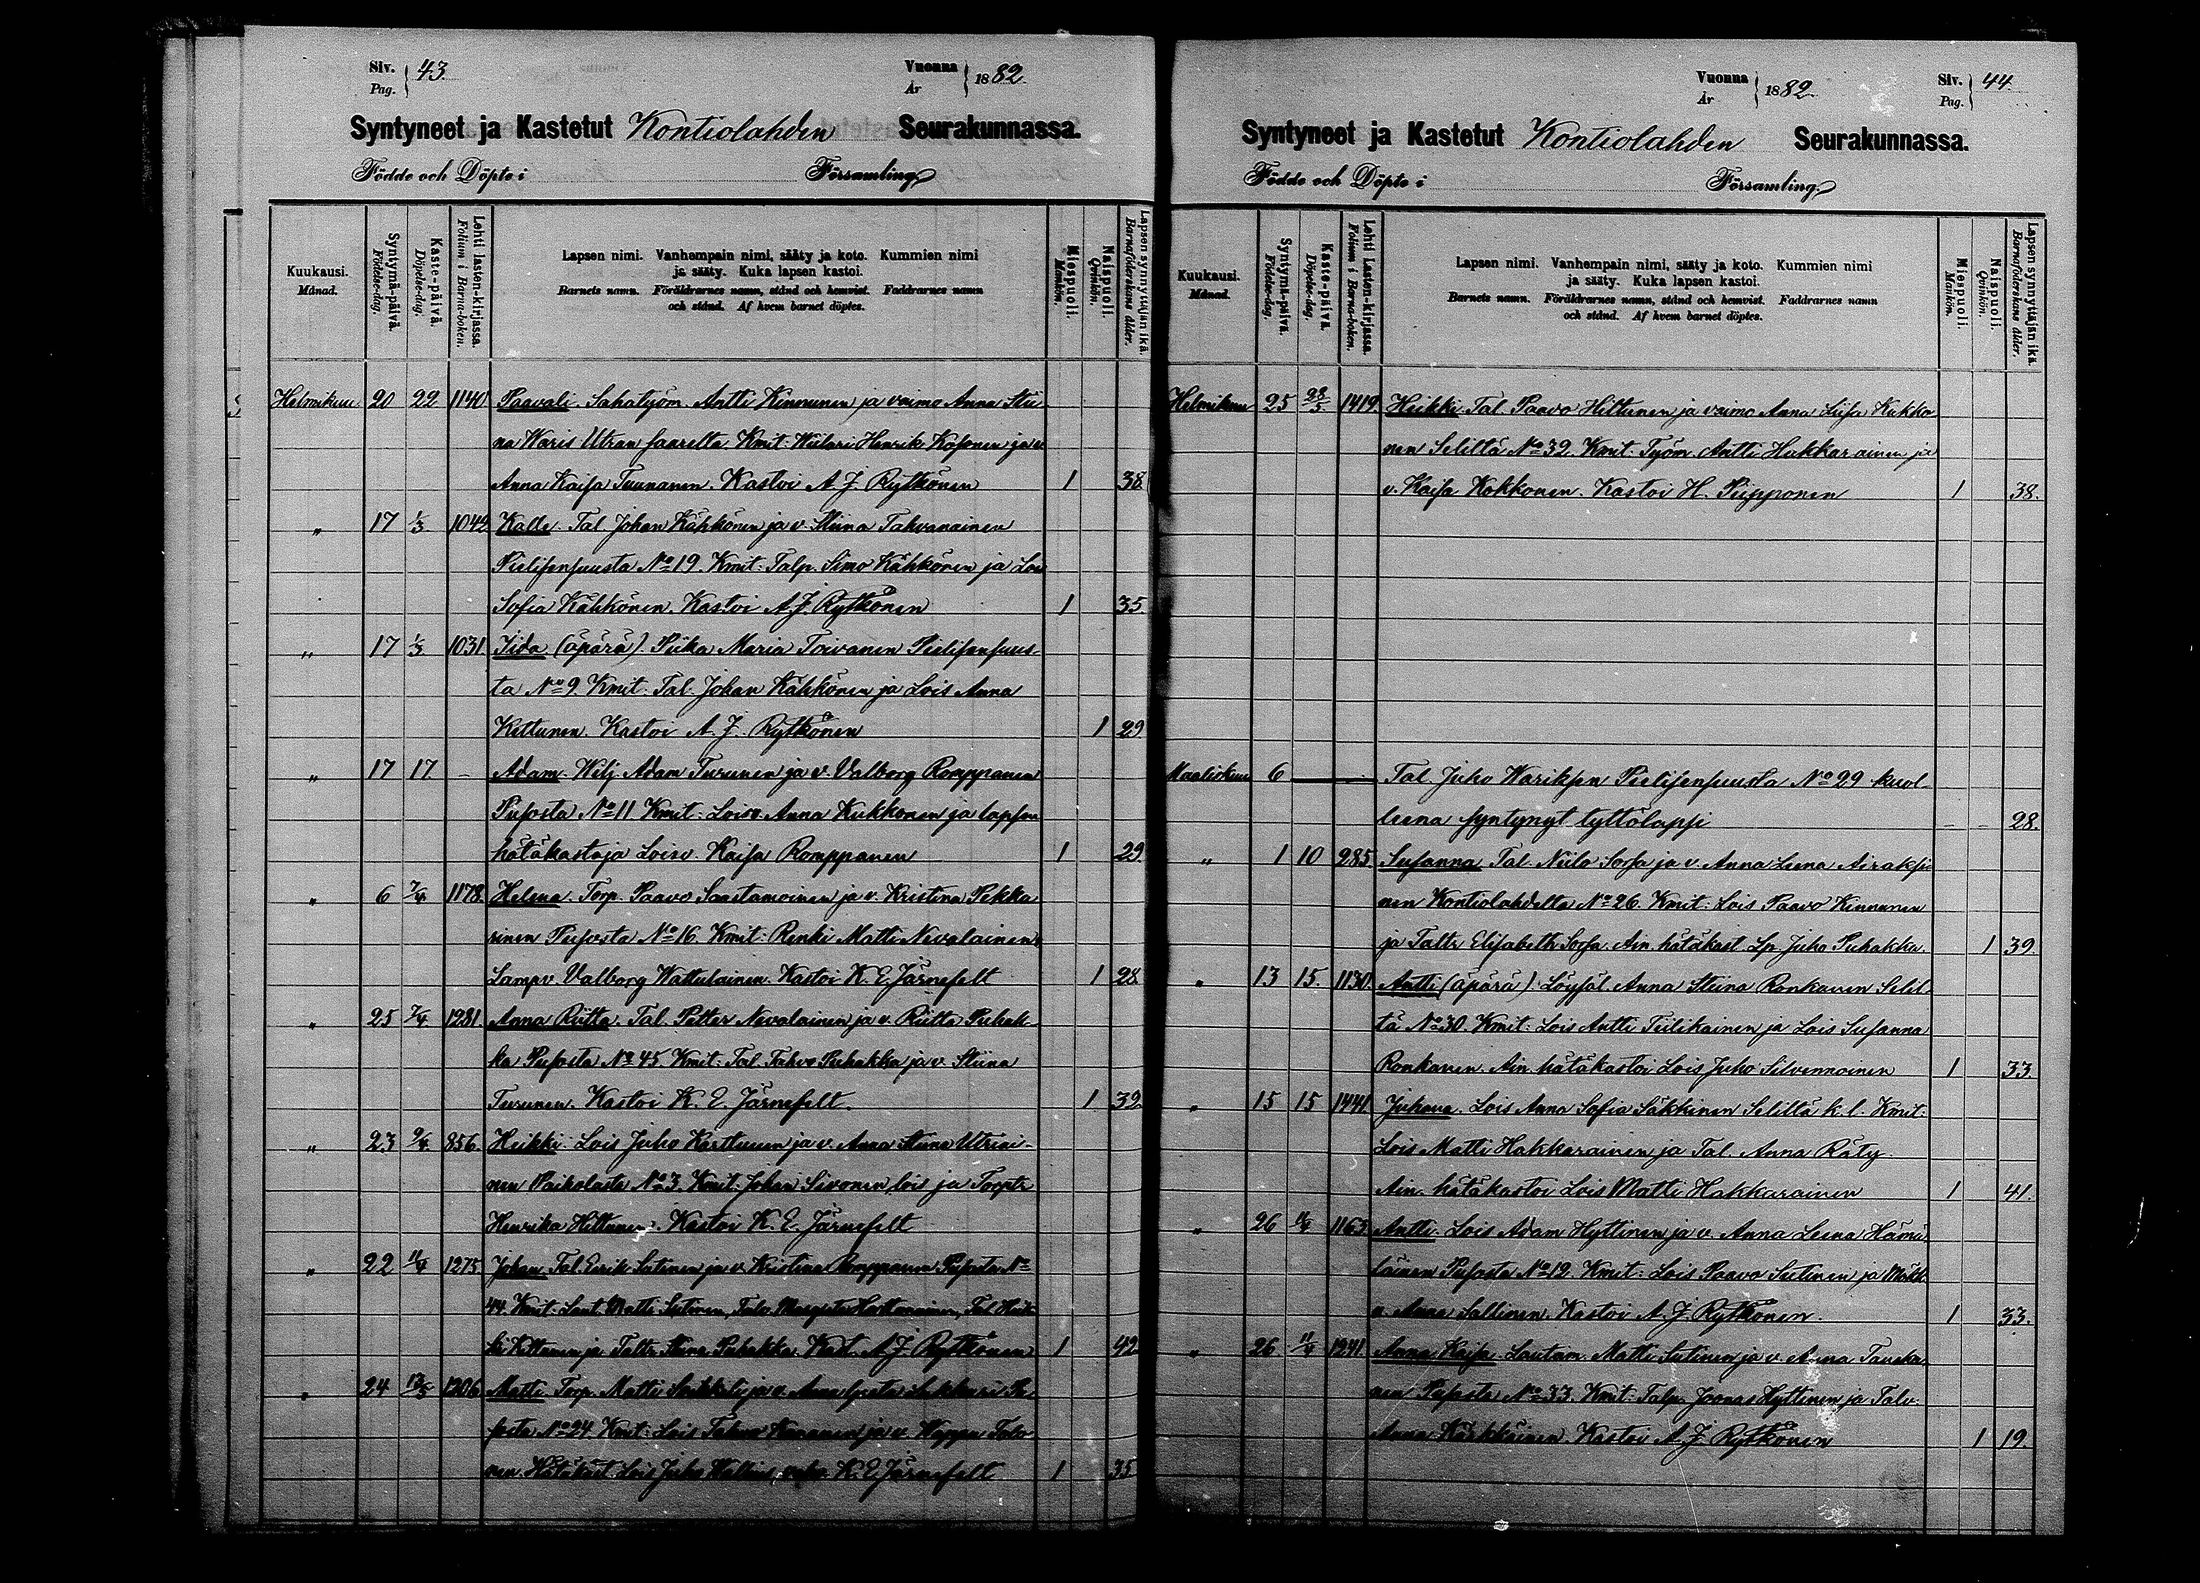 Siv. Pag. 43. Vuonna År 1882.
Syntyneet ja Kastetut Kontiolahden Seurakunnassa.
Födde och Döpte i Församling.
Kuukausi. Månad.
Syntymä-päivä. Födelse-dag.
Kaste-päivä. Döpelse-dag.
Lehti lasten-kirjassa. Folium i Barna-boken.
Lapsen nimi. Vanhempain nimi, sääty ja koto. Kummien nimi
ja sääty. Kuka lapsen kastoi.
Barnets namn. Föräldrarnes namn, stånd och hemvist. Faddrarnes namn
och stånd. Af hvem barnet döptes.
Miespuoli. Mankön.
Naispuoli. Qvinkön.
Lapsen synnyttäjän ikä. Barnaföderskans ålder.
Helmikuu 20 22 1140 Paavali. Sahatyöm. Antti Kinnunen ja vaimo Anna Stii-
na Waris Utran saarelta. Kmit: Wiilari Henrik Kosonen ja v.
Anna Kaisa Tuunanen. Kastoi A. J. Rytkönen 1 38.
" 17 1/3 1042 Kalle. Tal. Johan Kähkönen ja v. Stiina Tahvanainen
Pielisensuusta No 19. Kmit: Talp. Simo Kähkönen ja Lois
Sofia Kähkönen. Kastoi A. J. Rytkönen 1 35.
" 17 1/3 1031. Iida (äpärä). Piika Maria Toivanen Pielisensuus-
ta No 9. Kmit: Tal. Johan Kähkönen ja Lois Anna
Kettunen. Kastoi A. J. Rytkönen 1 29.
" 17 17 - Adam. Wilj. Adam Turunen ja v. Valborg Romppanen
Pusosta No 11 Kmit: Loisv. Anna Kukkonen ja lapsen
hätäkastaja Loisv. Kaisa Romppanen 1 29.
" 6 7/4 1178. Helena. Torp. Paavo Saastamoinen ja v. Kristina Pekka-
rinen Pusosta No 16. Kmit: Renki Matti Nevalainen
Lampv. Valborg Wattulainen. Kastoi K. E. Järnefelt 1 28
" 25 7/4 1281. Anna Riitta. Tal. Petter Nevalainen ja v. Riitta Puhak-
ka Pusosta No 45. Kmit: Tal. Tahvo Puhakka ja v. Stiina
Turunen. Kastoi K. E. Järnefelt. 1 39.
" 23 9/4 856. Heikki. Lois Juho Karttunen ja v. Anna Stiina Utriai-
nen Paiholasta No 3. Kmit: Johan Sivonen, lois ja Torptr
Henrika Hiltunen. Kastoi K. E. Järnefelt
" 22 11/4 1275. Johan. Tal. Eerik Sutinen ja v. Kristina Romppanen Pusosta No
44. Kmit: Laut. Matti Sutinen, Talv. Hei-
ki Kettunen ja Taltr Stiina Puhakka. Kast. A. J. Rytkönen 1 42
" 24 1206. Matti. Torp. Matti ja v. Anna Pu-
sosta No 24. Kmit: Lois Tahvo ja v.
nen. Hätäkast. Lois Juho K. E. Järnefelt 1 35
Vuonna År 1882. Siv. Pag. 44.
Syntyneet ja Kastetut Kontiolahden Seurakunnassa.
Födde och Döpte i Församling.
Kuukausi. Månad.
Syntymä-päivä. Födelse-dag.
Kaste-päivä. Döpelse-dag.
Lehti Lasten-kirjassa. Folium i Barna-boken.
Lapsen nimi. Vanhempain nimi, sääty ja koto. Kummien nimi
ja sääty. Kuka lapsen kastoi.
Barnets namn. Föräldrarnes namn, stånd och hemvist. Faddrarnes namn
och stånd. Af hvem barnet döptes.
Miespuoli. Mankön.
Naispuoli. Qvinkön.
Lapsen synnyttäjän ikä. Barnaföderskans ålder.
Helmikuu 25 28/5 1419. Heikki. Tal. Paavo Hiltunen ja vaimo Anna Liisa Kukko-
nen Seliltä No 32. Kmit: Työm. Antti Hakkarainen ja
v. Kaisa Kokkonen. Kastoi H. Piipponen 1 38.
Maaliskuu 6 Tal. Juho Wariksen Pielisensuusta No 29 kuol-
leena syntynyt tyttölapsi - - 28.
" 1 10 285. Susanna. Tal. Niilo Sorsa ja v. Anna Leena Airaksi-
nen Kontiolahdelta No 26. Kmit: Lois Paavo Kinnunen
ja Taltr Elisabeth Sorsa. Ain. hätäkast. Lp. Juho Puhakka. 1 39.
" 13 15. 1130. Antti (äpärä). Löysäl. Anna Stiina Ronkanen Selil-
tä No 30. Kmit: Lois Antti Tiilikainen ja Lois Susanna
Ronkanen. Ain. hätäkastoi Lois Juho Silvennoinen 1 33.
" 15 15 1441. Juhana. Lois Anna Sofia Säkkinen Seliltä k. l. Kmit:
Lois Matti Hakkarainen ja Tal. Anna Räty.
Ain. hätäkastoi Lois Matti Hakkarainen 1 41.
" 26 11/4 1163. Antti. Lois Adam Hyttinen ja v. Anna Leena Hämä-
läinen Pusosta No 12. Kmit: Lois Paavo Sutinen ja Mökk.
v. Anna Sallinen. Kastoi A. J. Rytkönen. 1 33.
" 26 11/4 1241. Anna Kaisa. Lautam. Matti Sutinen ja v. Anna Taneska-
nen Pusosta No 33. Kmit: Talp. Joonas Hyttinen ja Talv.
Anna Kärkkäinen. Kastoi A. J. Rytkönen 1 19.